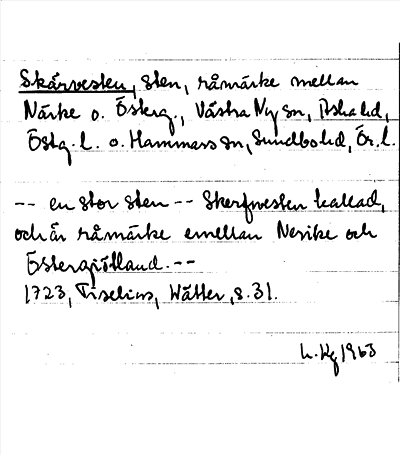 Skärvesten, sten, råmärke mellan
Närke o. Österg., Västra Ny sn, Aska hd,
Östg. l. o. Hammars sn, Sundbo hd, Ör. l.
-- en stor sten -- Skerfwesten kallad,
och är råmärke emellan Nerike och
Östergiötland. --
1723, Tiselius, Wätter, s. 31.
1963